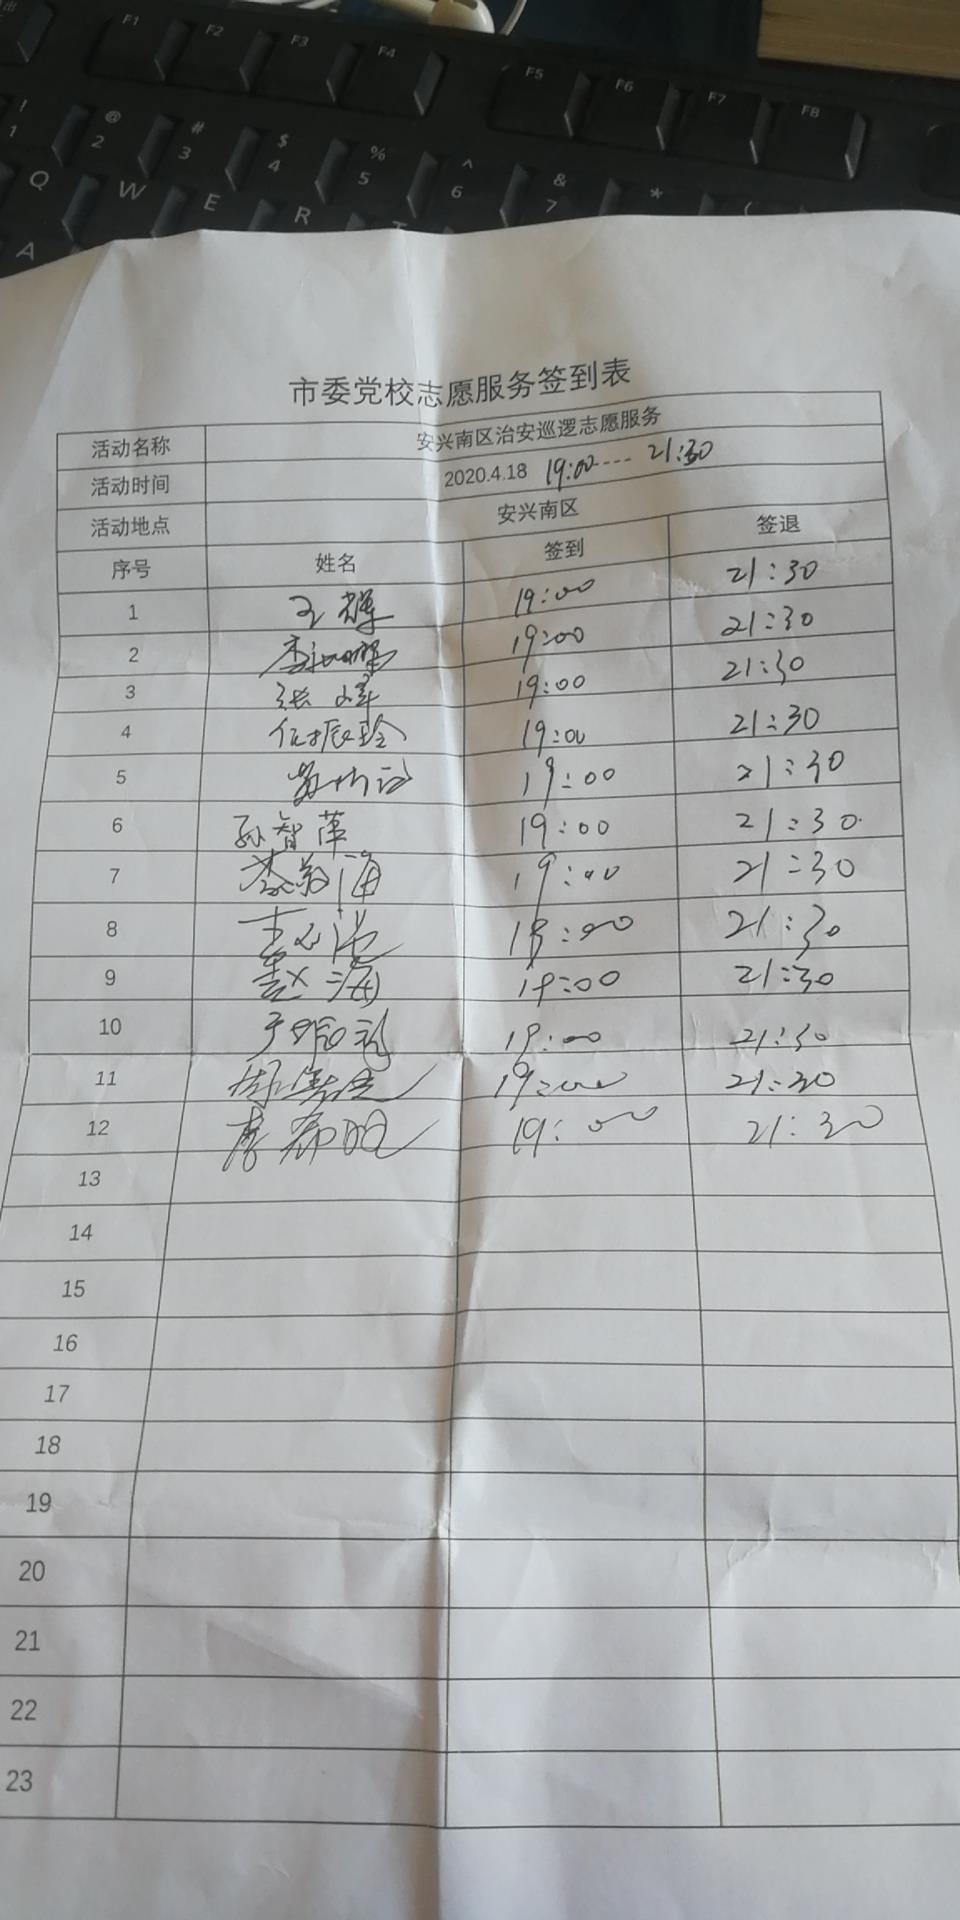 F1 F2 F3 F4 F5 F6 F7 F8
! 1 @ 2 # 3 $ 4 % 5 ^ 6 & 7 * (
Q W E R T
A
市委党校志愿服务签到表
活动名称 安兴南区治安巡逻志愿服务
活动时间 2020.4.18 19:00---- 21:30
活动地点 安兴南区
序号 姓名 签到 签退
1 王辉 19:00 21:30
2 19:00 21:30
3 张峰 19:00 21:30
4 任振玲 19:00 21:30
5 19:00 21:30
6 孙智萍 19:00 21:30
7 19:00 21:30
8 19:00 21:30
9 赵海 19:00 21:30
10 19:00 21:30
11 19:00 21:30
12 19:00 21:30
13
14
15
16
17
18
19
20
21
22
23